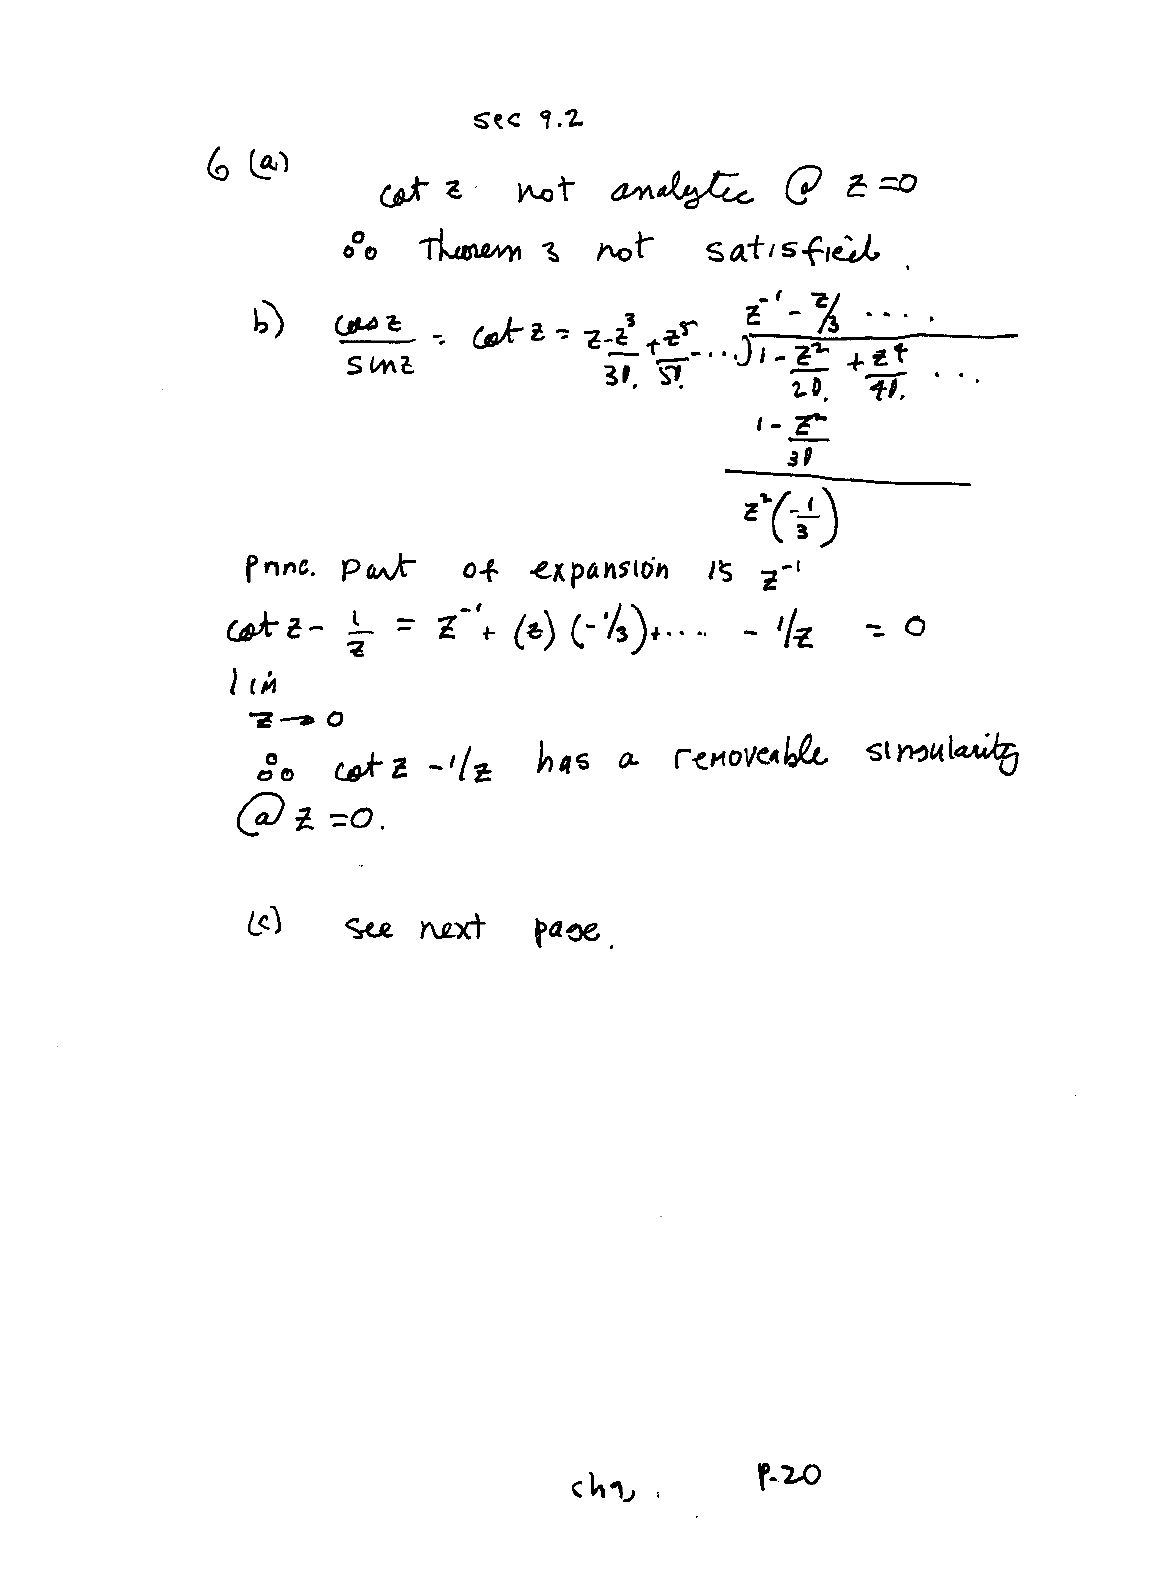 sec 9.2
6 (a)
cot z not analytic @ z=0
∴ Theorem 3 not satisfied.
b) cos z / sin z = cot z = z - z³/3! + z⁵/5! - ... ) 1 - z²/2! + z⁴/4! ...
z⁻¹ - z/3 ....
1 - z²/3!
z²(-1/3)
Princ. part of expansion is z⁻¹
cot z - 1/z = z⁻¹ + (z)(-1/3)+.... - 1/z = 0
lim
z→0
∴ cot z - 1/z has a removeable singularity
@ z=0.
(c) see next page.
ch9, p.20